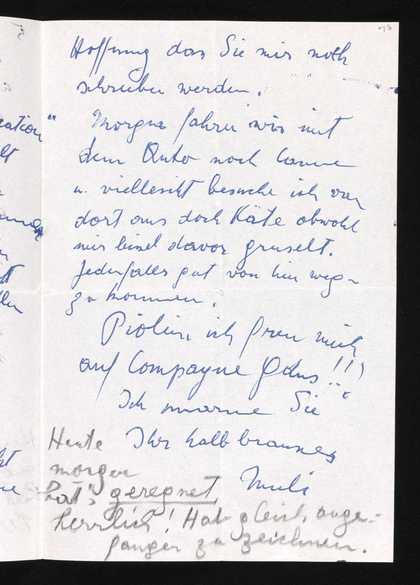 Hoffnung das Sie mir noch
schreiben werden.
Morgen fahren wir mit
dem Auto nach Cannes
u. vielleicht besuche ich von
dort aus doch Käte obwohl
mir bissl davor gruselt.
Jedenfalls gut von hier weg-
zukommen.
ich freu mich
auf Compagne
Ich umarme Sie
Ihr halbbraunes
Muli
Heute
morgen
hat's geregnet
herrlich! Hab gleich ange-
fangen zu zeichnen.